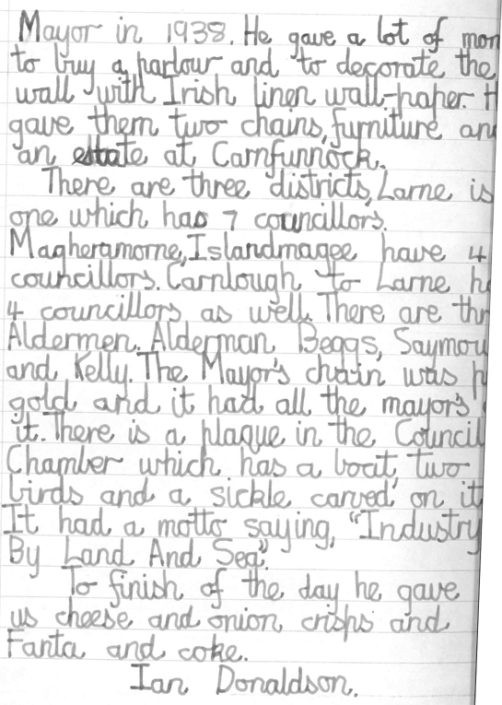 Mayor in 1938. He gave a lot of mon
to buy a parlour and to decorate the
wall with Irish linen wall-paper. H
gave them two chains, furniture an
an estate at Carnfunnock.
There are three districts, Larne is
one which has 7 councillors.
Magheramorne, Islandmagee have 4
councillors. Carnlough to Larne h
4 councillors as well. There are thr
Aldermen. Alderman Beggs, Saymou
and Kelly. The Mayor's chain was p
gold and it had all the mayor's
it. There is a plaque in the Council
Chamber which has a boat, two
birds and a sickle carved on it
It had a motto saying, "Industry
By Land And Sea".
To finish of the day he gave
us cheese and onion crisps and
Fanta and coke.
Ian Donaldson.